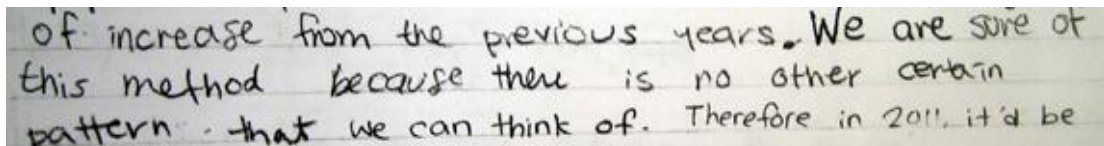 of increase from the previous years. We are sure of
this method because there is no other certain
pattern that we can think of. Therefore in 2011, it'd be